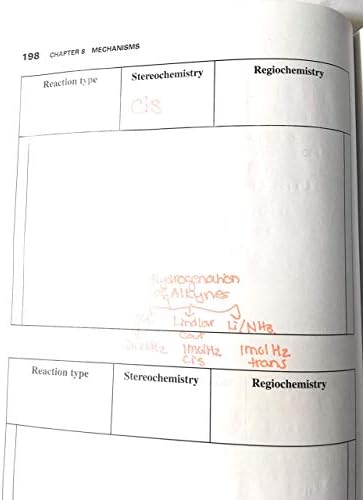 198 CHAPTER 8 MECHANISMS
Reaction type Stereochemistry Regiochemistry
cis
Hydrogenation
of Alkynes
Lindlar Li/NH3
1molH2 1molH2
cis trans
Reaction type Stereochemistry Regiochemistry